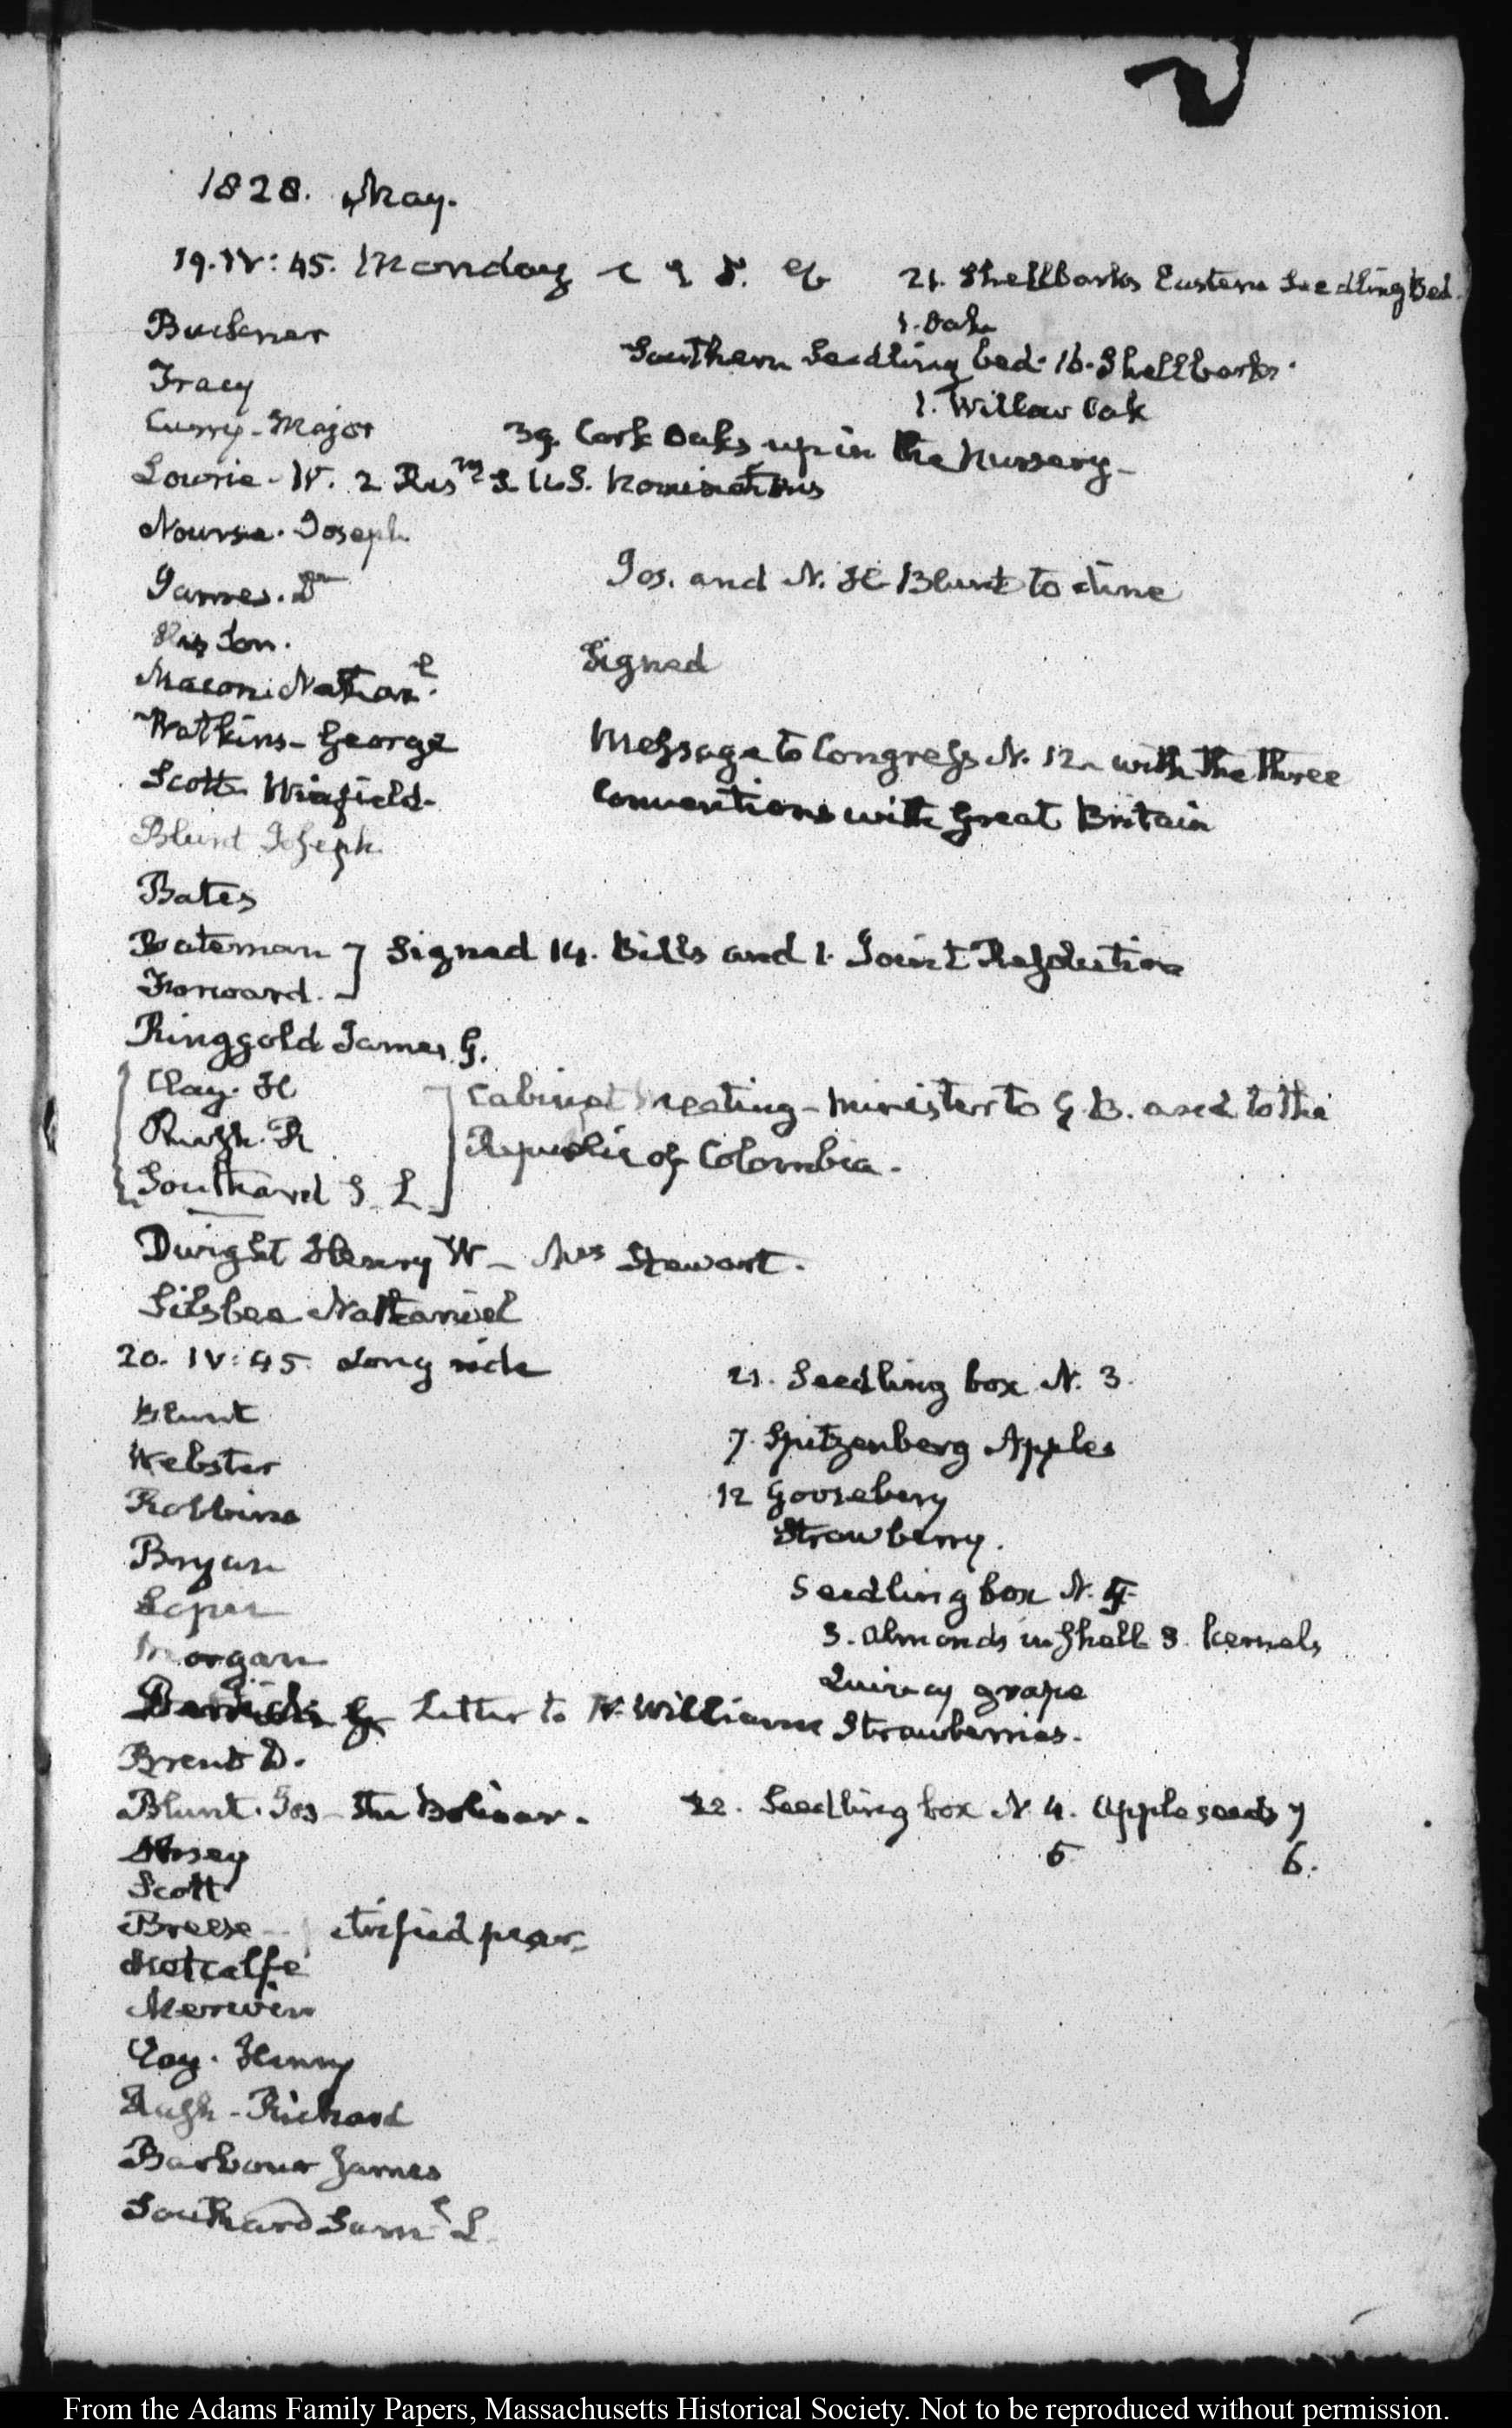 1828. May.
19. IV: 45. Monday
21. Shellbarks Eastern Seedling Bed.
1. Oak
Buckner
Southern Seedling bed. 16. Shellbarks.
Tracy
1. Willow Oak
Curry. Major
39. Cork Oaks up in the Nursery—
Lowrie. W. 2 Resns S. U.S. Nominations
Nourse. Joseph
James. Dr
Jos. and N. H Blunt to dine
His Son.
Signed
Macon. Nathanl.
Watkins— George
Message to Congress N. 12. with the three
Scott Winfield.
Conventions with Great Britain
Blunt Joseph
Bates
Bateman
Signed 14. Bills and 1. Joint Resolution
Forward.
Ringgold James G.
Clay. H
Cabinet Meeting— Minister to G. B. and to the
Rush. R
Republic of Colombia.
Southard S. L.
Dwight Henry W— Mrs Stewart.
Silsbee Nathaniel
20. IV: 45. Long ride
21. Seedling box N. 3.
Blunt
7. Spitzenberg Apples
Webster
12 Gooseberry
Robbins
Strawberry.
Bryan
Seedling box N.
3. Almonds in Shell 3. kernels
Morgan
Quincy grape
Letter to W. Williams
Strawberries.
Brent D.
Blunt. Jos— The Bolivar.
22. Seedling box N. 4. Apple seeds 7
5
6.
Scott
Breese—
Metcalfe
Merwin
Clay. Henry
Rush— Richard
Barbour James
Southard Saml L.
From the Adams Family Papers, Massachusetts Historical Society. Not to be reproduced without permission.